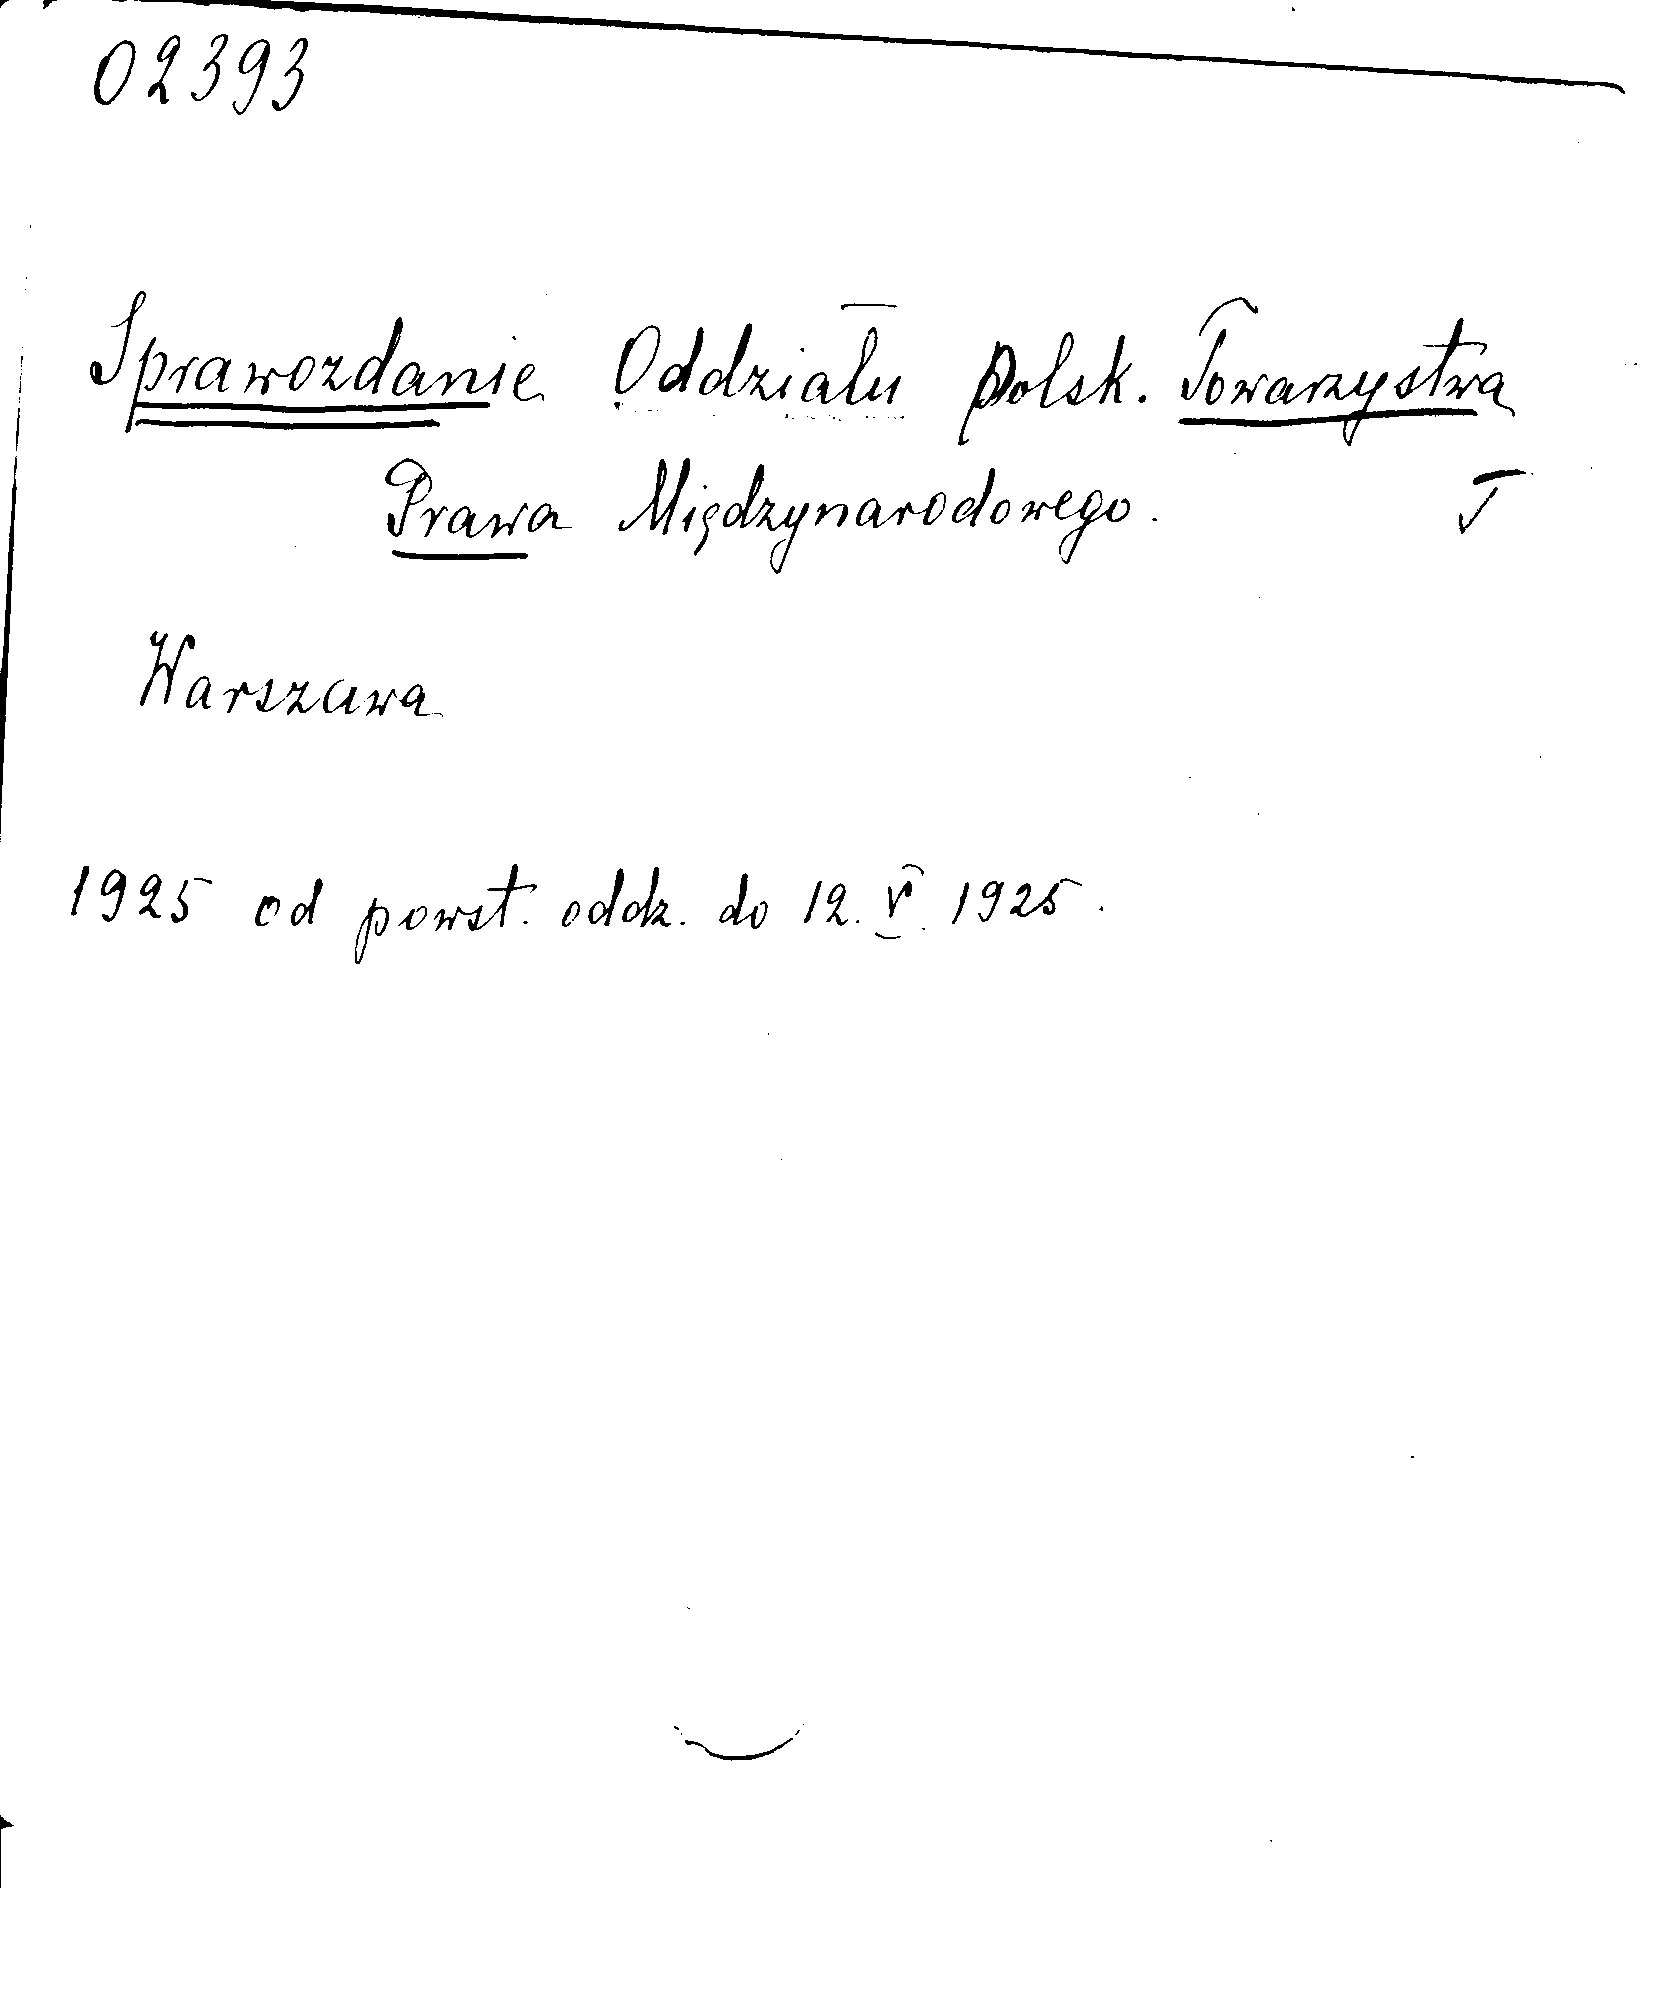 02393
Sprawozdanie Oddziału Polsk. Towarzystwa
Prawa Międzynarodowego. T
Warszawa
1925 od powst. oddz. do 12. V. 1925.